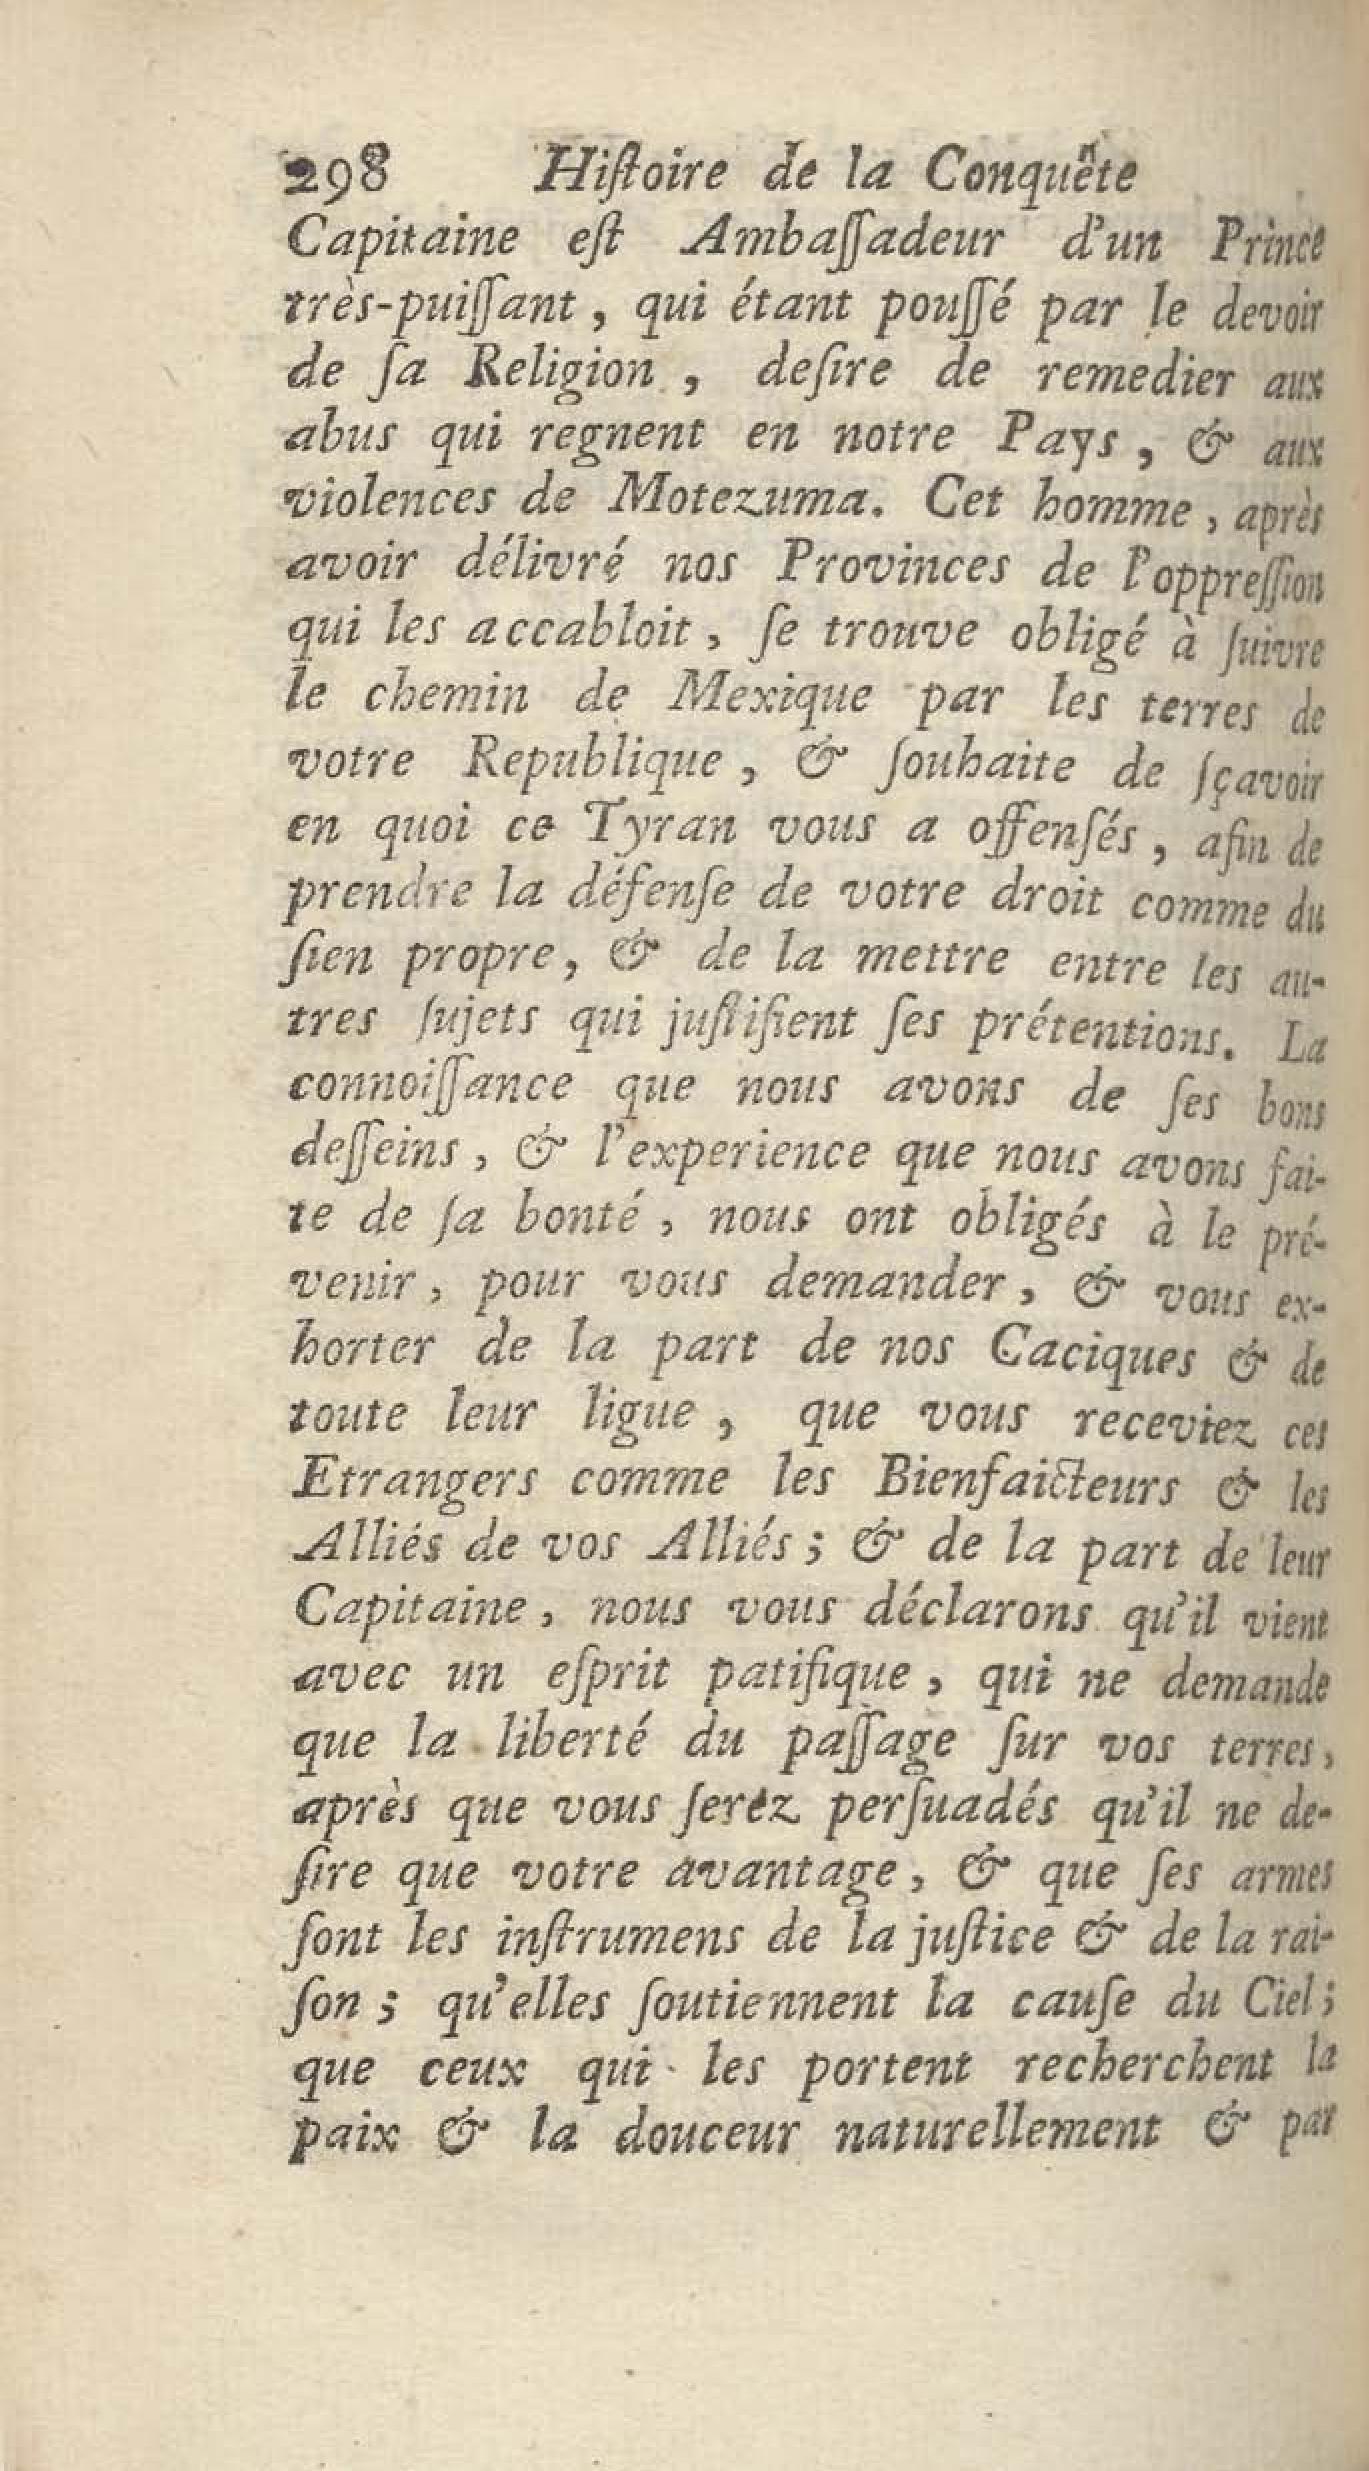 298 Hiſtoire de la Conquête
Capitaine eſt Ambaſſadeur d'un Prince
très-puiſſant, qui étant pouſſé par le devoir
de ſa Religion, deſire de remedier aux
abus qui regnent en notre Pays, & aux
violences de Motezuma. Cet homme, après
avoir délivré nos Provinces de l'oppreſſion
qui les accabloit, ſe trouve obligé à ſuivre
le chemin de Mexique par les terres de
votre Republique, & ſouhaite de ſçavoir
en quoi ce Tyran vous a offenſés, afin de
prendre la défenſe de votre droit comme du
ſien propre, & de la mettre entre les au-
tres ſujets qui juſtifient ſes prétentions. La
connoiſſance que nous avons de ſes bons
deſſeins, & l'experience que nous avons fai-
te de ſa bonté, nous ont obligés à le pré-
venir, pour vous demander, & vous ex-
horter de la part de nos Caciques & de
toute leur ligue, que vous receviez ces
Etrangers comme les Bienfaicteurs & les
Alliés de vos Alliés; & de la part de leur
Capitaine, nous vous déclarons qu'il vient
avec un eſprit patifique, qui ne demande
que la liberté du paſſage ſur vos terres,
après que vous ſerez perſuadés qu'il ne de-
ſire que votre avantage, & que ſes armes
ſont les inſtrumens de la juſtice & de la rai-
ſon; qu'elles ſoutiennent la cauſe du Ciel;
que ceux qui les portent recherchent la
paix & la douceur naturellement & par